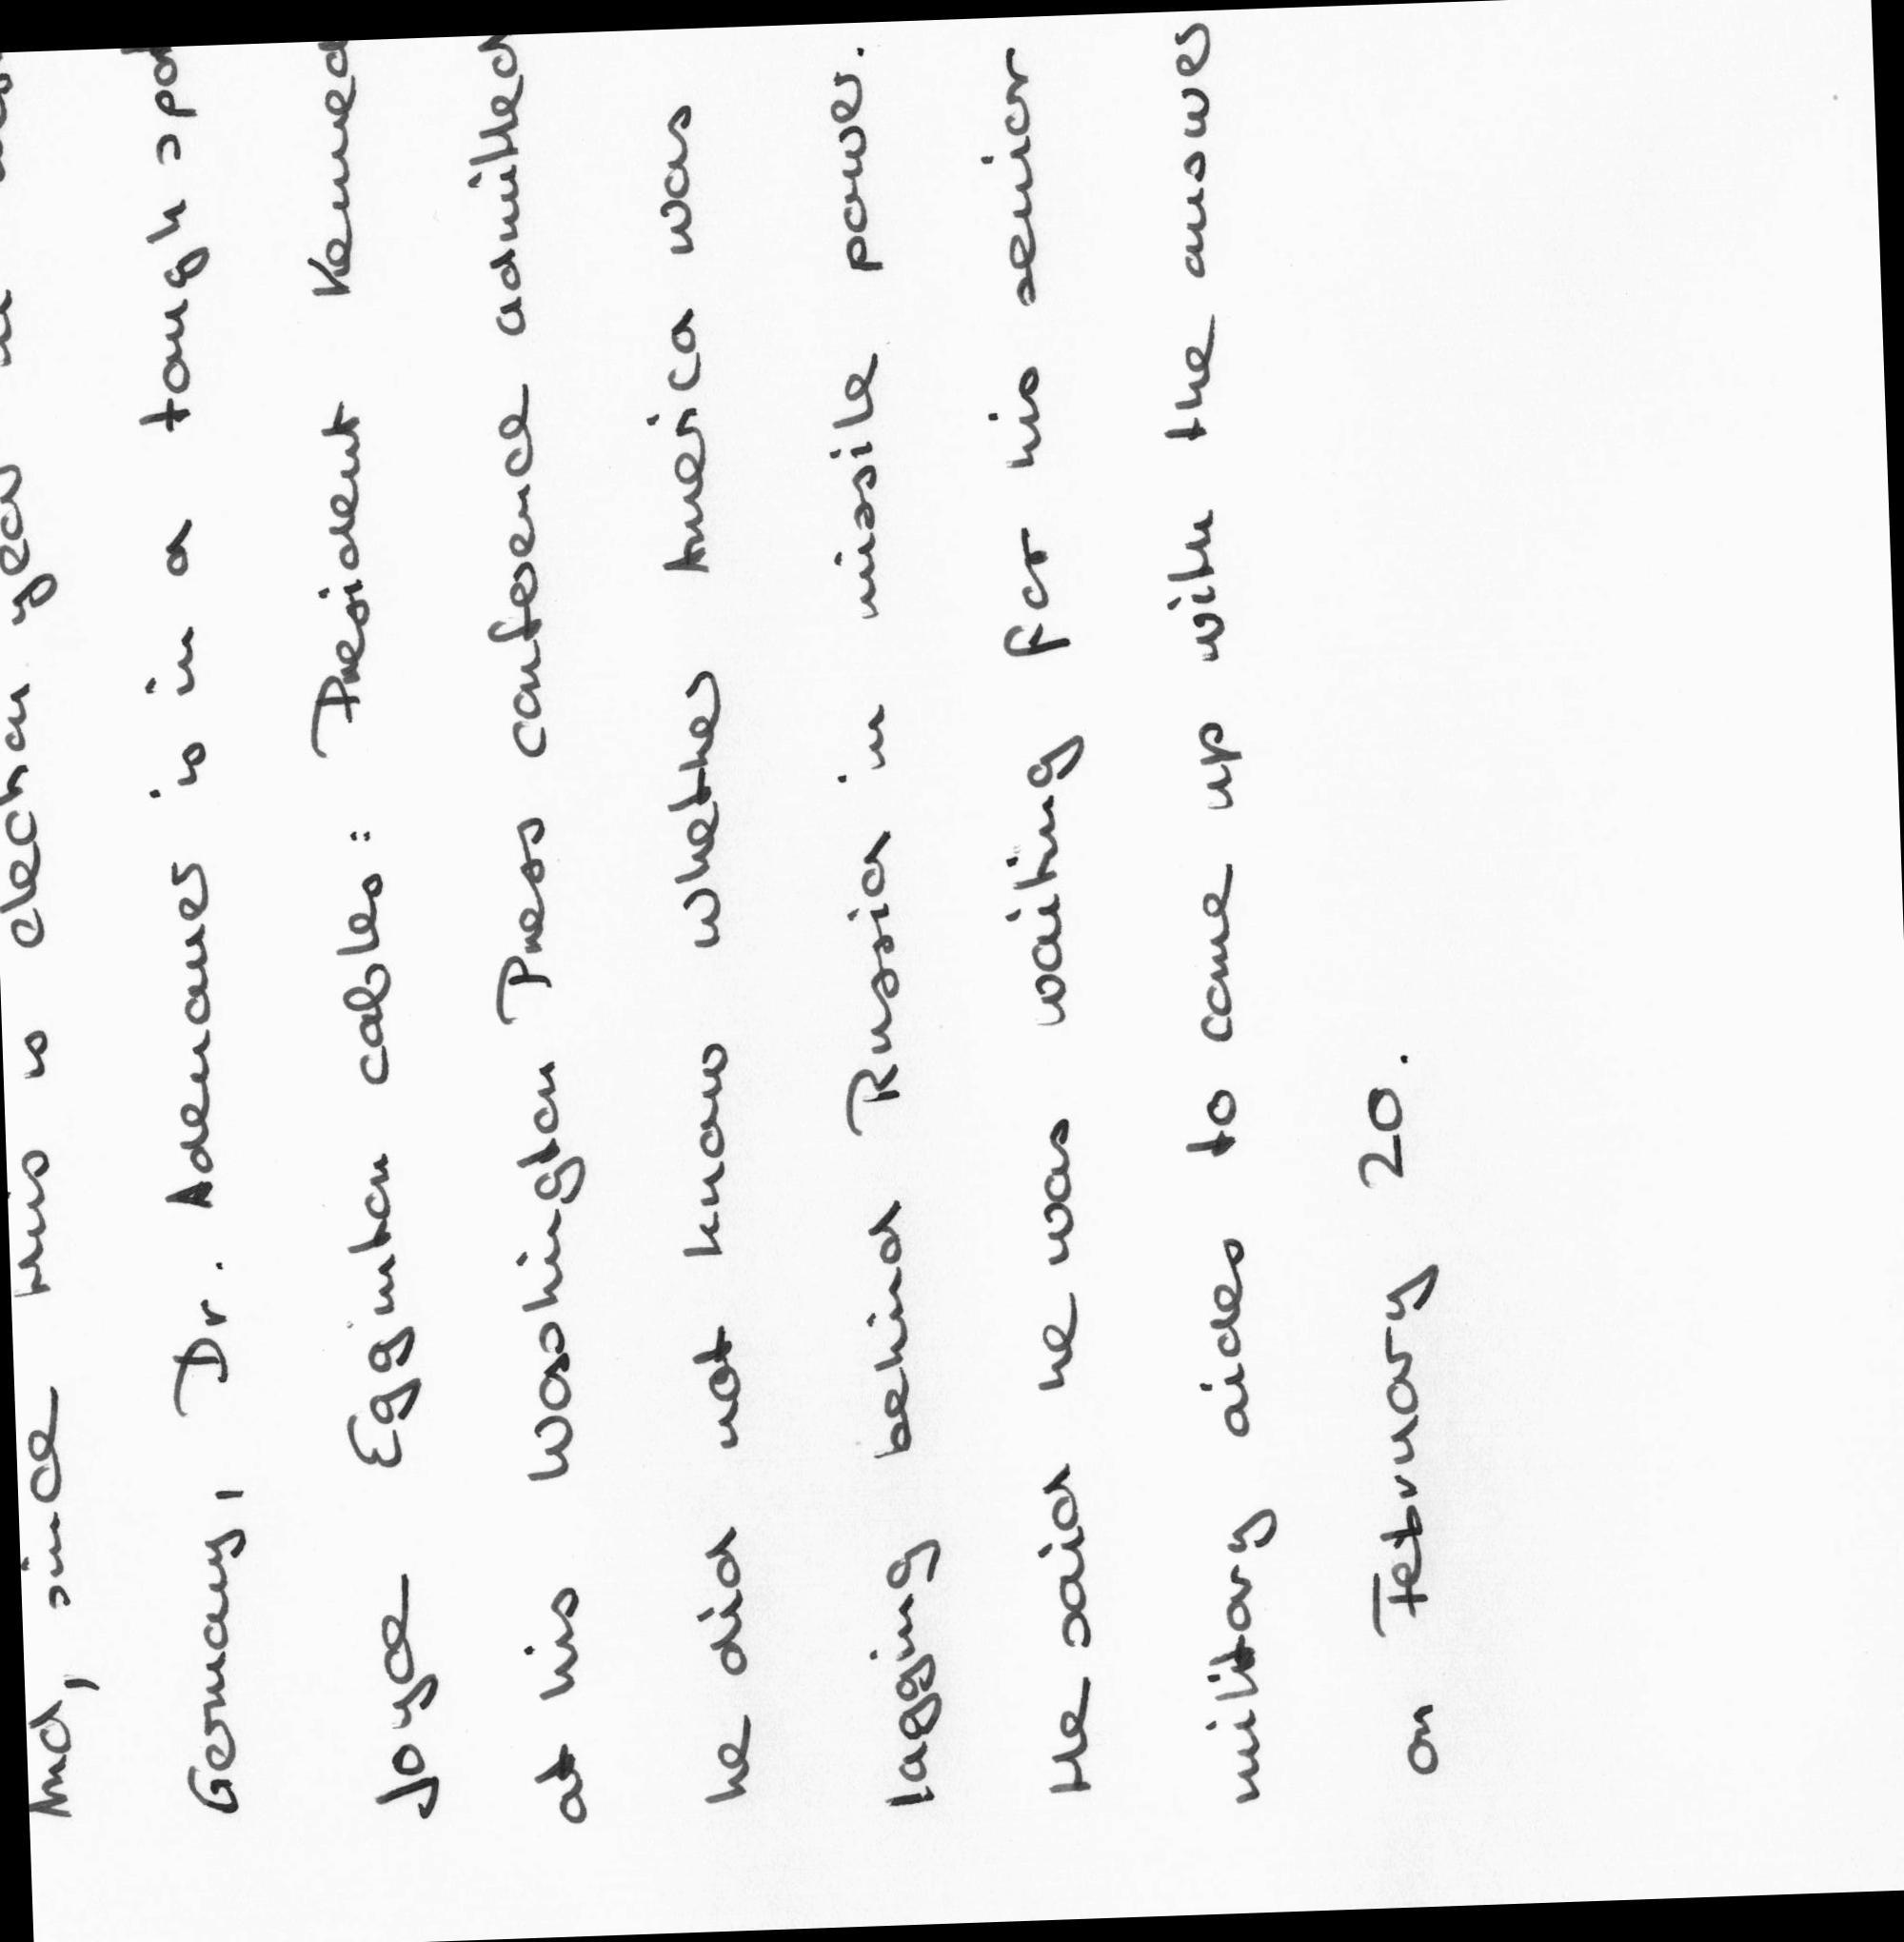 And, since this is election year in
Germany, Dr. Adenauer is in a tough spot
Joyce Egginton cables: President Kenned
at his Washington Press conference admitted
he did not know whether America was
lagging behind Russia in missile power.
He said he was waiting for his senior
military aides to come up with the answer
on February 20.